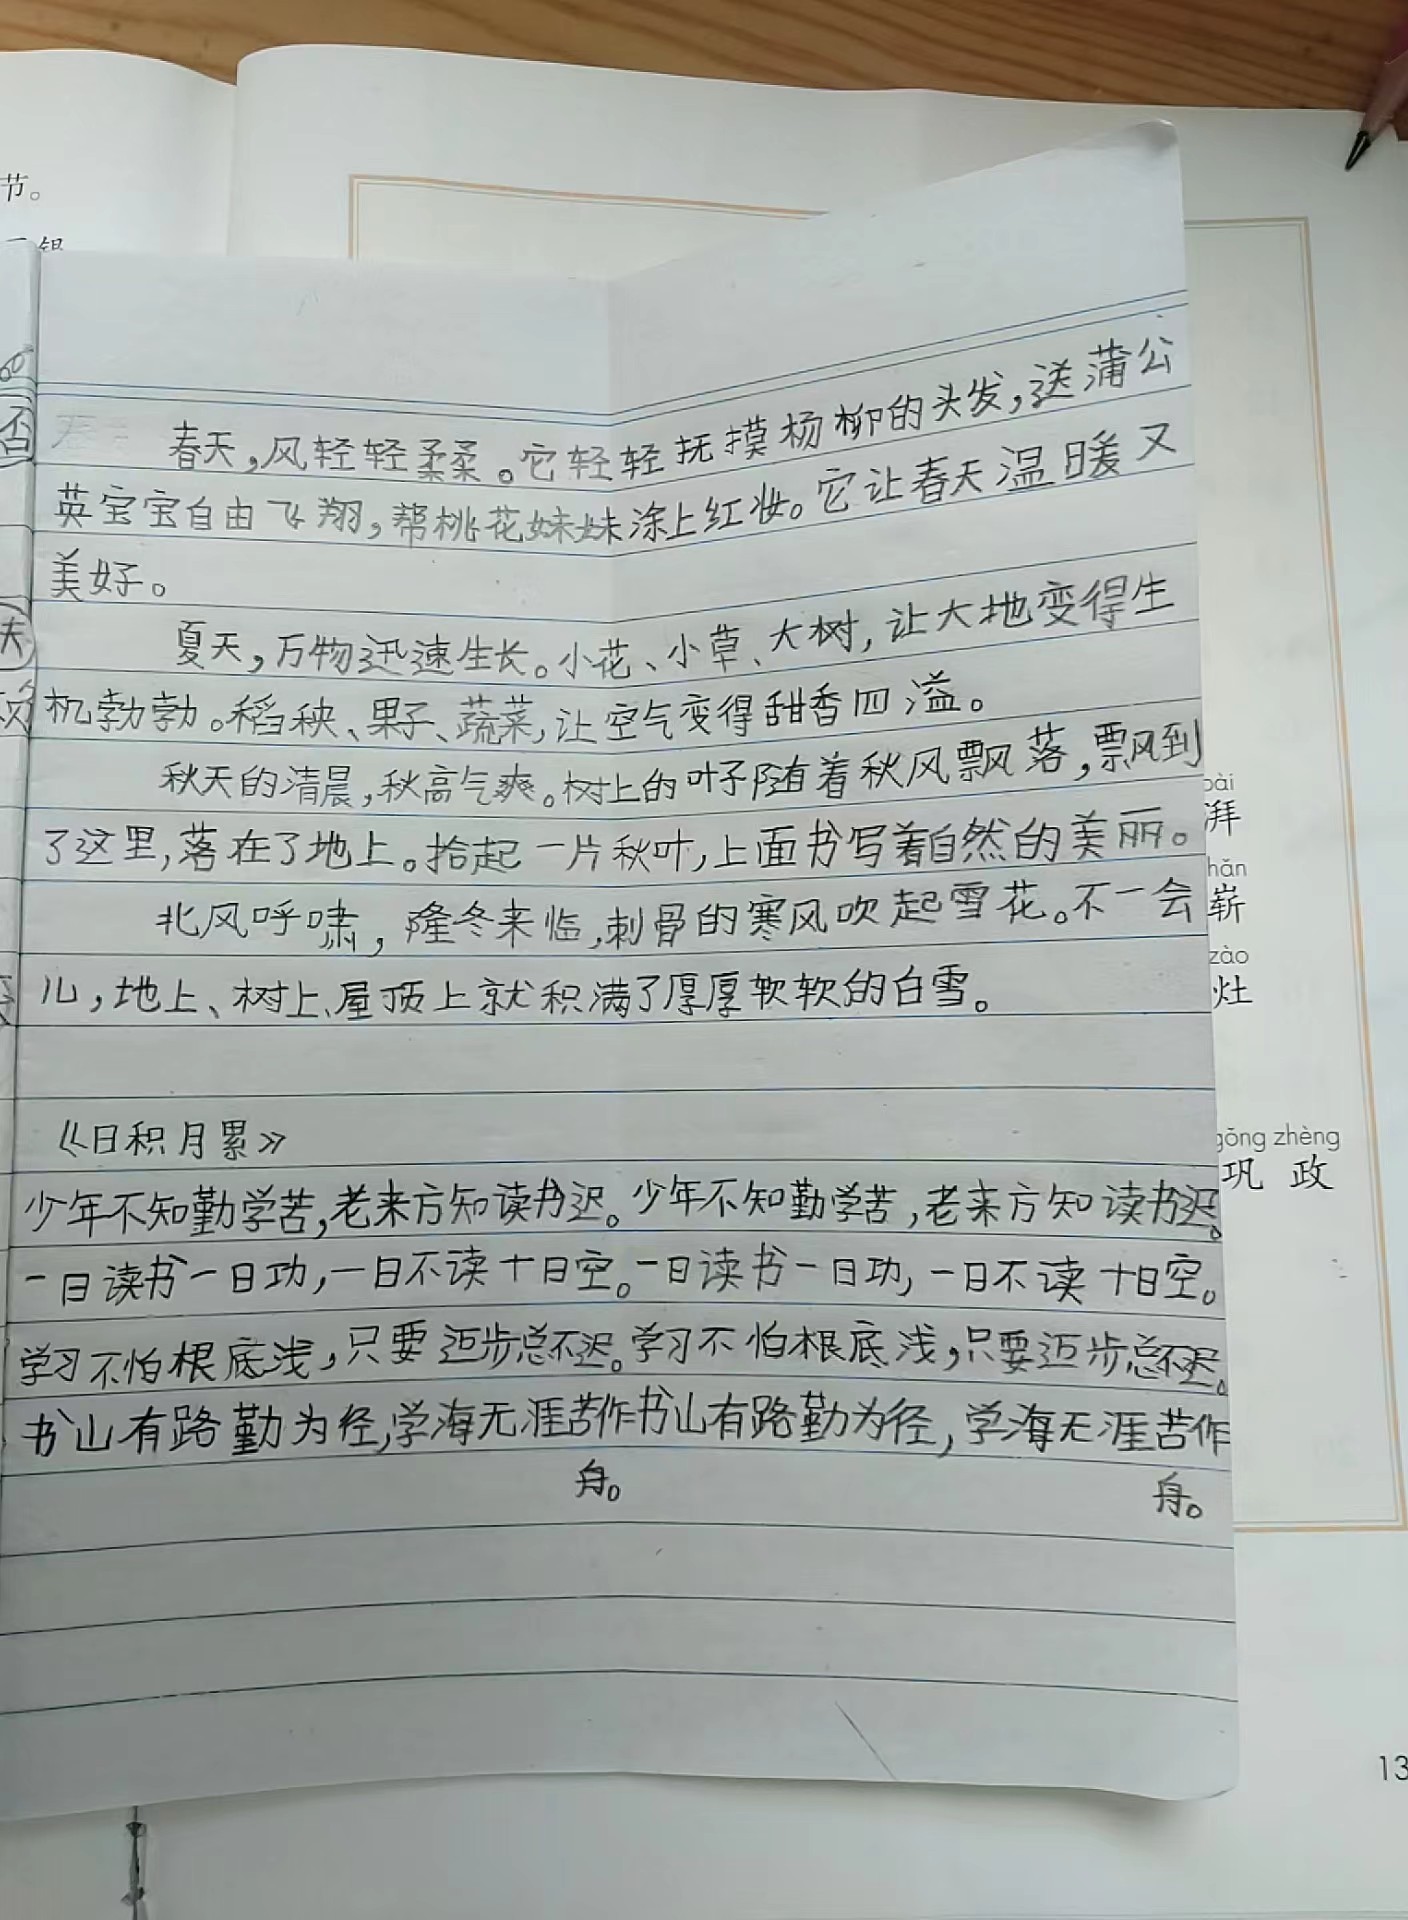 节。
春天，风轻轻柔柔。它轻轻抚摸杨柳的头发，送蒲公
英宝宝自由飞翔，帮桃花妹妹涂上红妆。它让春天温暖又
美好。
夏天，万物迅速生长。小花、小草、大树，让大地变得生
机勃勃。稻秧、果子、蔬菜，让空气变得甜香四溢。
秋天的清晨，秋高气爽。树上的叶子随着秋风飘落，飘到
了这里，落在了地上。拾起一片秋叶，上面书写着自然的美丽。
北风呼啸，隆冬来临，刺骨的寒风吹起雪花。不一会
儿，地上、树上、屋顶上就积满了厚厚软软的白雪。
《日积月累》
少年不知勤学苦，老来方知读书迟。少年不知勤学苦，老来方知读书迟。
一日读书一日功，一日不读十日空。一日读书一日功，一日不读十日空。
学习不怕根底浅，只要迈步总不迟。学习不怕根底浅，只要迈步总不迟。
书山有路勤为径，学海无涯苦作书山有路勤为径，学海无涯苦作
舟。 舟。
湃
hǎn
崭
zào
灶
gōng zhèng
巩 政
13